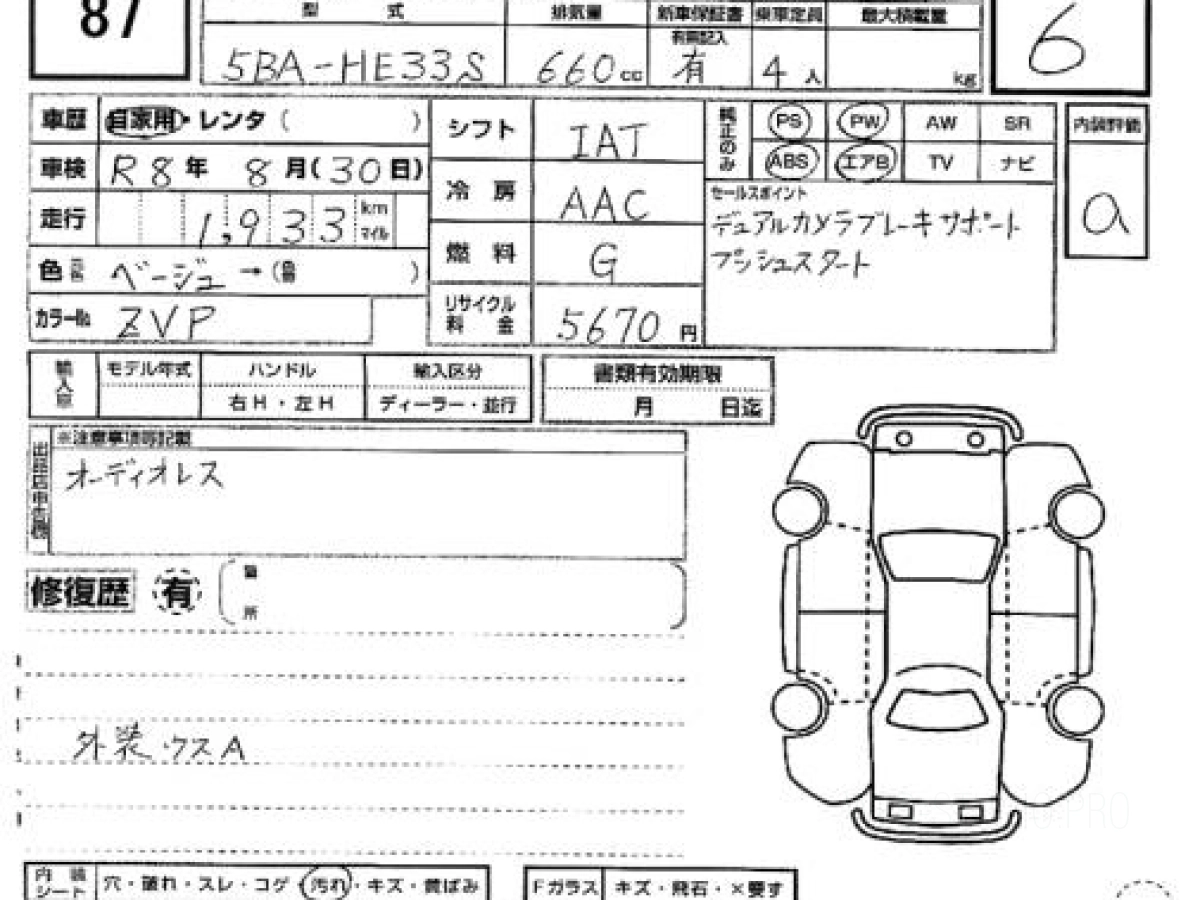 87
型 式 排気量 新車保証書 乗車定員 最大積載量
有無記入
5BA-HE33S 660cc 有 4人 kg
6
車歴 自家用・レンタ( ) シフト IAT 純正のみ PS PW AW SR 内装評価
車検 R8年 8月(30日) ABS エアB TV ナビ
冷房 AAC セールスポイント
走行 1,933 km マイル デュアルカメラブレーキサポート a
色 ベージュ →( ) 燃料 G プッシュスタート
カラーNo ZVP リサイクル料金 5670円
輸入車 モデル年式 ハンドル 輸入区分 書類有効期限
右H・左H ディーラー・並行 月 日迄
※注意事項等記載
オーディオレス
修復歴 有 箇所
外装ウスA
内装シート 穴・破れ・スレ・コゲ・汚れ・キズ・黄ばみ Fガラス キズ・飛石・×要す